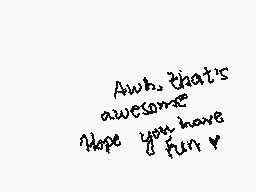 Awh, that's
awesome
Hope you have
fun ♥